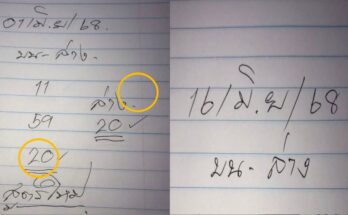 01/มิ.ย/68.
บน-ล่าง.
11
59
20 ✓
ล่าง.
20 ✓
16/มิ.ย/68
บน-ล่าง